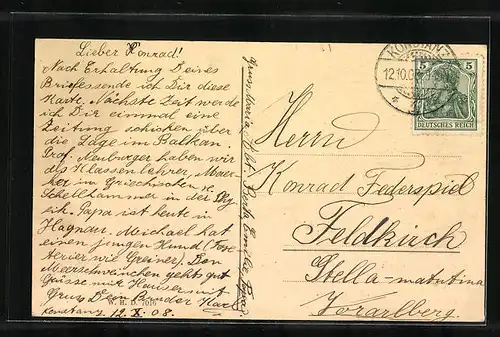 Lieber Konrad!
Nach Erhaltung Deines
Briefes sende ich Dir diese
Karte. Nächste Zeit werde
ich Dir einmal eine
Zeitung schicken über
die Lage im Balkan.
Prof. Neuburger haben wir
als Klassenlehrer,
im Griechischen u.
Schellhammer in der Phy
sik. Papa ist heute in
Hagnau. Michael hat
einen jungen Hund (Fox
terier wie Greiner). Den
Meerschweinchen gehts gut
Grüsse mir Hauser mit
Gruss Dein Bruder Karl
Konstanz 12. X. 08.
W. H. D. 7019
Herrn
Konrad Federspiel
Feldkirch
Stella-matutina
Vorarlberg.
KONSTANZ
12.10.08
5 5
DEUTSCHES REICH